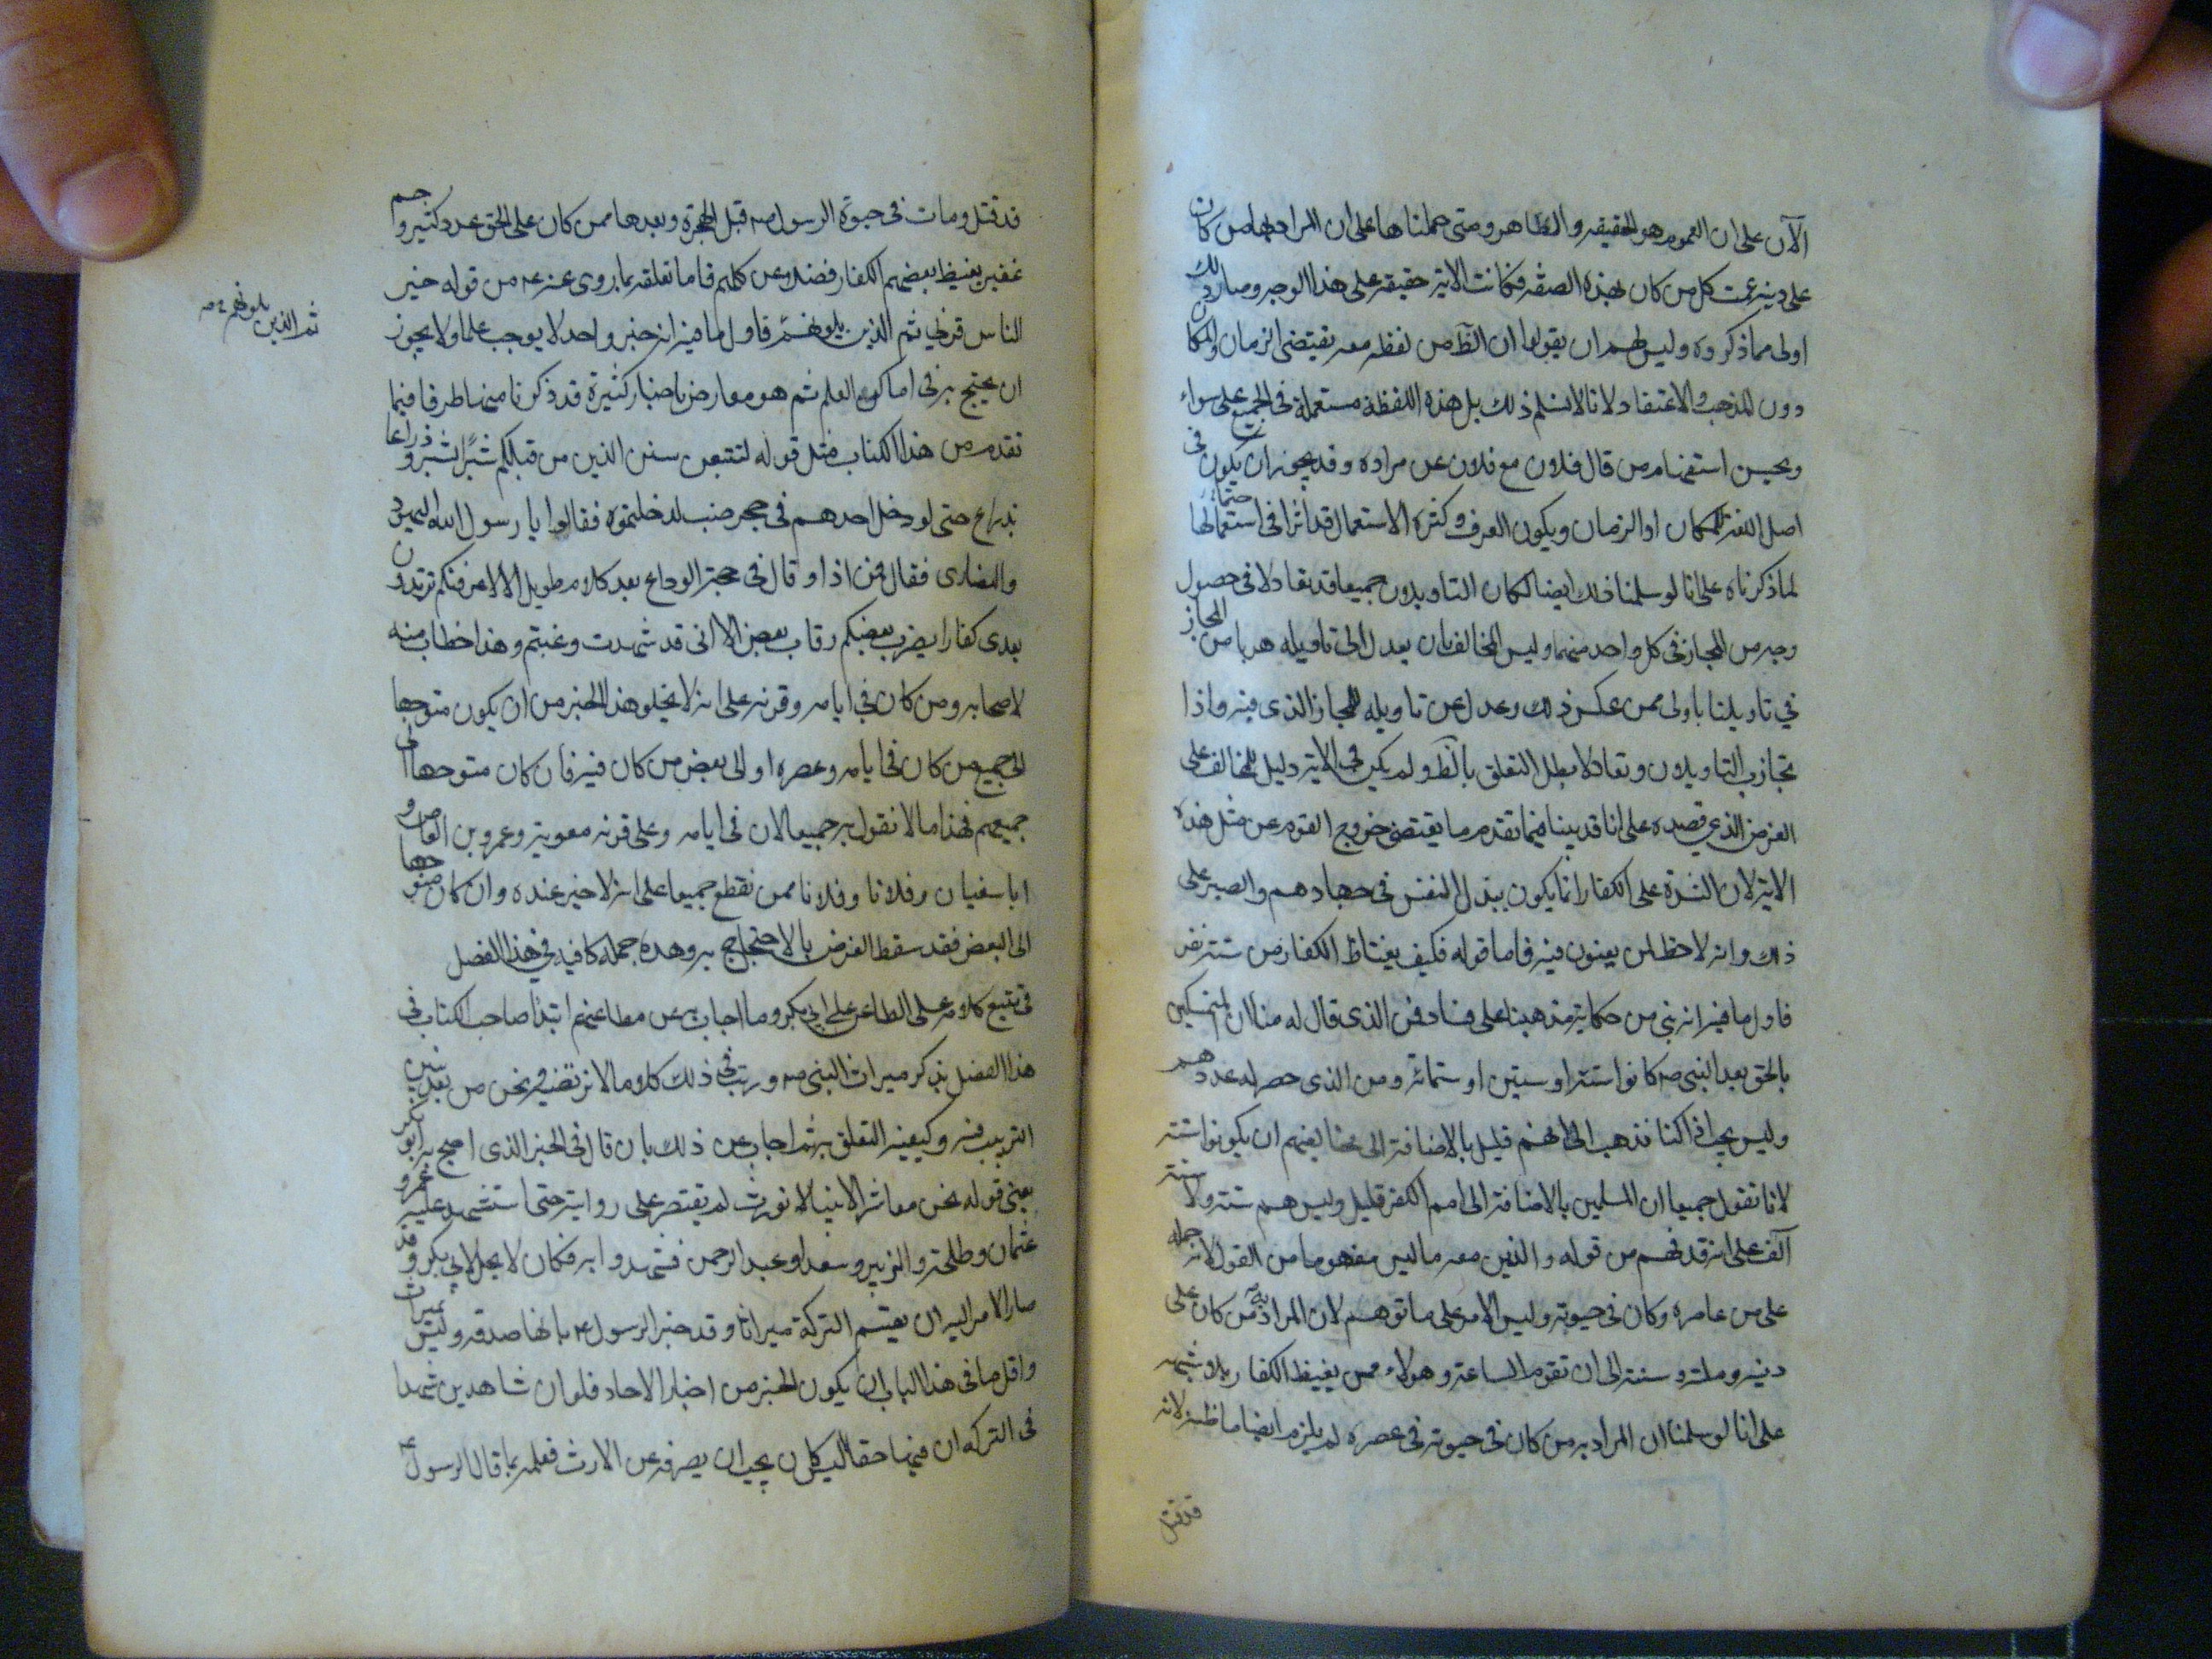 الآن على ان العموم هو الحقيقة والظاهر ومتى حملناها على ان المراد بها من كان
على دينه عمت كل من كان بهذه الصفة فكانت الاية حقيقة على هذا الوجه وصار ذلك
اولى مما ذكروه وليس لهم ان يقولوا ان الظ من لفظه معه يقتضى الزمان والمكان
دون المذهب والاعتقاد لانا لا نسلم ذلك بل هذه اللفظة مستعملة فى الجميع على سواء
ويحسن استفهام من قال فلان مع فلان عن مراده وقد يجوز ان يكون فى
اصل اللغة للمكان او الزمان ويكون العرف وكثرة الاستعمال قد اثرا فى استعمالها
لما ذكرناه على انا لو سلمنا ذلك ايضا لكان التاويلان جميعا قد تعادلا فى حصول
وجه من المجاز فى كل واحد منهما وليس المخالف بان يعدل الى تاويله هربا من المجاز
في تاويلنا باولى ممن عكس ذلك وعدل عن تاويله للمجاز الذى فيه واذا
تجاذب التاويلان وتعادلا بطل التعلق بالظ ولم يكن فى الاية دليل للمخالف على
الغرض الذي قصده على انا قد بينا فيما تقدم ما يقتضى خروج القوم عن مثل هذه
الاية لان الشدة على الكفار انما يكون ببذل النفس فى جهادهم والصبر على
ذلك وانه لا حظ لمن يعنون فيه فاما قوله فكيف يغتاظ الكفار من ستة نفر
فاول ما فيه انه بنى من حكاية مذهبنا على فساد فمن الذى قال له منا ان المتمسكين
بالحق بعد النبى ص كانوا ستة او ستين او ستمائة ومن الذى حصر له عددهم
وليس يجب اذا كنا نذهب الى انهم قليل بالاضافة الى مخالفيهم ان يكونوا ستة
لانا نقول جميعا ان المسلمين بالاضافة الى امم الكفر قليل وليس هم ستة ولا ستة
آلف على انه قد فهم من قوله والذين معه ما ليس مفهوما من القول لانه حمله
على من عاصره وكان فى حيوته وليس الامر على ما توهم لان المراد به من كان على
دينه وملته وسنته الى ان تقوم الساعة وهولاء ممن يغيظ الكفار بلا شبهة
على انا لو سلمنا ان المراد به من كان فى حيوته فى عصره لم يلزم ايضا ما ظنه لانه
قد قتل
قد قتل ومات فى حيوة الرسول ص قبل الهجرة وبعدها ممن كان على الحق عدد كثير وجم
غفير يغيظ بعضهم الكفار فضلا عن كلهم فاما تعلقه بما روى عنه ع من قوله خير
الناس قرني ثم الذين يلونهم فاول ما فيه انه خبر واحد لا يوجب علما ولا يجوز
ثم الذين يلونهم ص
ان يحتج به فى اماكن العلم ثم هو معارض باخبار كثيرة قد ذكرنا منها طرفا فيما
تقدم من هذا الكتاب مثل قوله لتتبعن سنن الذين من قبلكم شبرا بشبر وذراعا
بذراع حتى لو دخل احدهم فى جحر ضب لدخلتموه فقالوا يا رسول الله اليهود
والنصارى فقال فمن اذا وقال فى حجة الوداع بعد كلام طويل الا لاعرفنكم ترتدون
بعدى كفارا يضرب بعضكم رقاب بعض الا انى قد شهدت وغبتم وهذا خطاب منه
لاصحابه ومن كان في ايامه وقرنه على انه لا يخلو هذا الخبر من ان يكون متوجها
الى جميع من كان فى ايامه وعصره او الى بعض من كان فيه فان كان متوجها الى
جميعهم فهذا ما لا نقول به جميعا لان فى ايامه وعلى قرنه معوية وعمرو بن العاص و
ابا سفيان وفلانا وفلانا ممن نقطع جميعا على انه لا خير عنده وان كان متوجها
الى البعض فقد سقط الغرض بالاحتجاج به وهذه جملة كافية في هذا الفصل
فى تتبع كلامه على الطاعن على ابى بكر وما اجاب به عن مطاعنهم ابتدا صاحب الكتاب فى
هذا الفصل بذكر ميراث النبى ص ورتب فى ذلك كلاما لا نرتضيه ونحن من بعد نبين
الترتيب فيه وكيفية التعلق به ثم اجاب عن ذلك بان قال فى الخبر الذى احتج به ابو بكر
يعنى قوله نحن معاشر الانبيا لا نورث لم يقتصر على روايته حتى استشهد عليه عمرو
عثمان وطلحة والزبير وسعدا وعبد الرحمن فشهدوا به فكان لا يحل لابى بكر وقد
صار الامر اليه ان يقسم التركة ميراثا وقد خبر الرسول ع بانها صدقة وليس بميراث
واقل ما فى هذا الباب ان يكون الخبر من اخبار الاحاد فلو ان شاهدين شهدا
فى التركة ان فيها حقا اليس كان يجب ان يصرفه عن الارث فعلمه بما قال الرسول ع